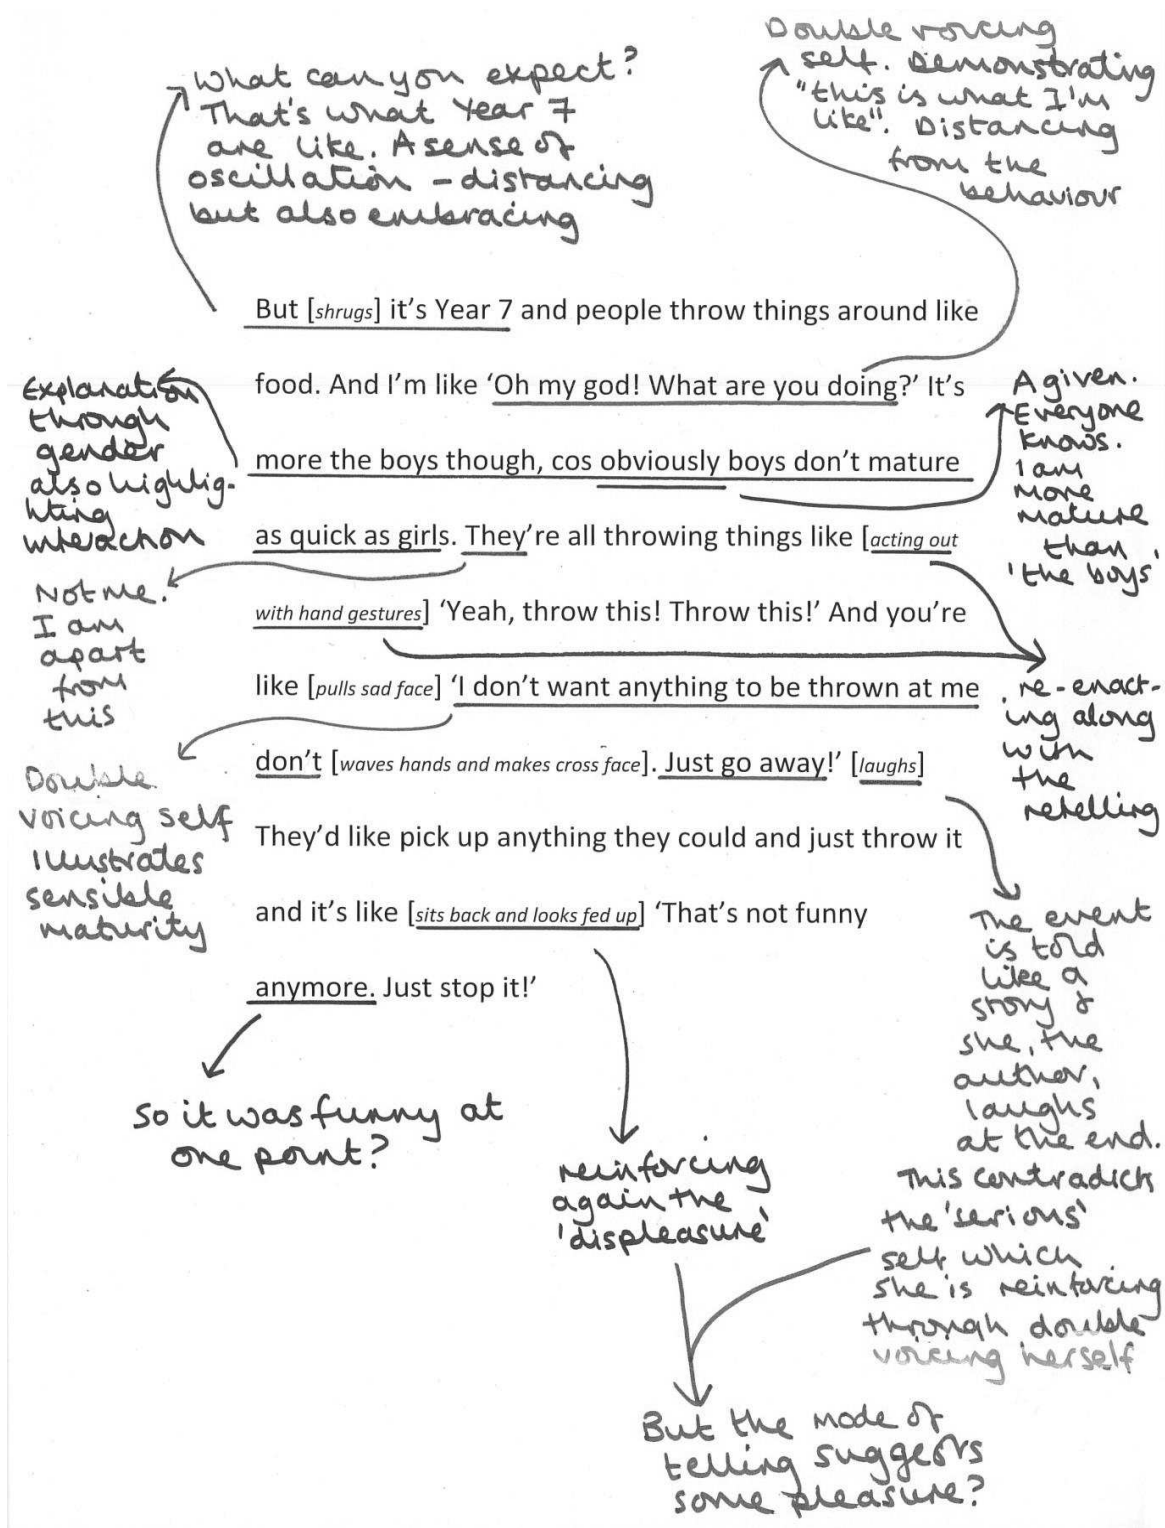 Double voicing
self. Demonstrating
"this is what I'm
like". Distancing
from the
behaviour
What can you expect?
That's what Year 7
are like. A sense of
oscillation - distancing
but also embracing
But [shrugs] it's Year 7 and people throw things around like
food. And I'm like 'Oh my god! What are you doing?' It's
more the boys though, cos obviously boys don't mature
as quick as girls. They're all throwing things like [acting out
with hand gestures] 'Yeah, throw this! Throw this!' And you're
like [pulls sad face] 'I don't want anything to be thrown at me
don't [waves hands and makes cross face]. Just go away!' [laughs]
They'd like pick up anything they could and just throw it
and it's like [sits back and looks fed up] 'That's not funny
anymore. Just stop it!'
Explanation
through
gender
also highlig-
hting
interaction
Not me.
I am
apart
from
this
Double
voicing self
illustrates
sensible
maturity
A given.
Everyone
knows.
I am
more
mature
than
'the boys'
re-enact-
ing along
with
the
retelling
The event
is told
like a
story &
she, the
author,
laughs
at the end.
This contradicts
the 'serious'
self which
she is reinforcing
through double
voicing herself
So it was funny at
one point?
reinforcing
again the
'displeasure'
But the mode of
telling suggests
some pleasure?